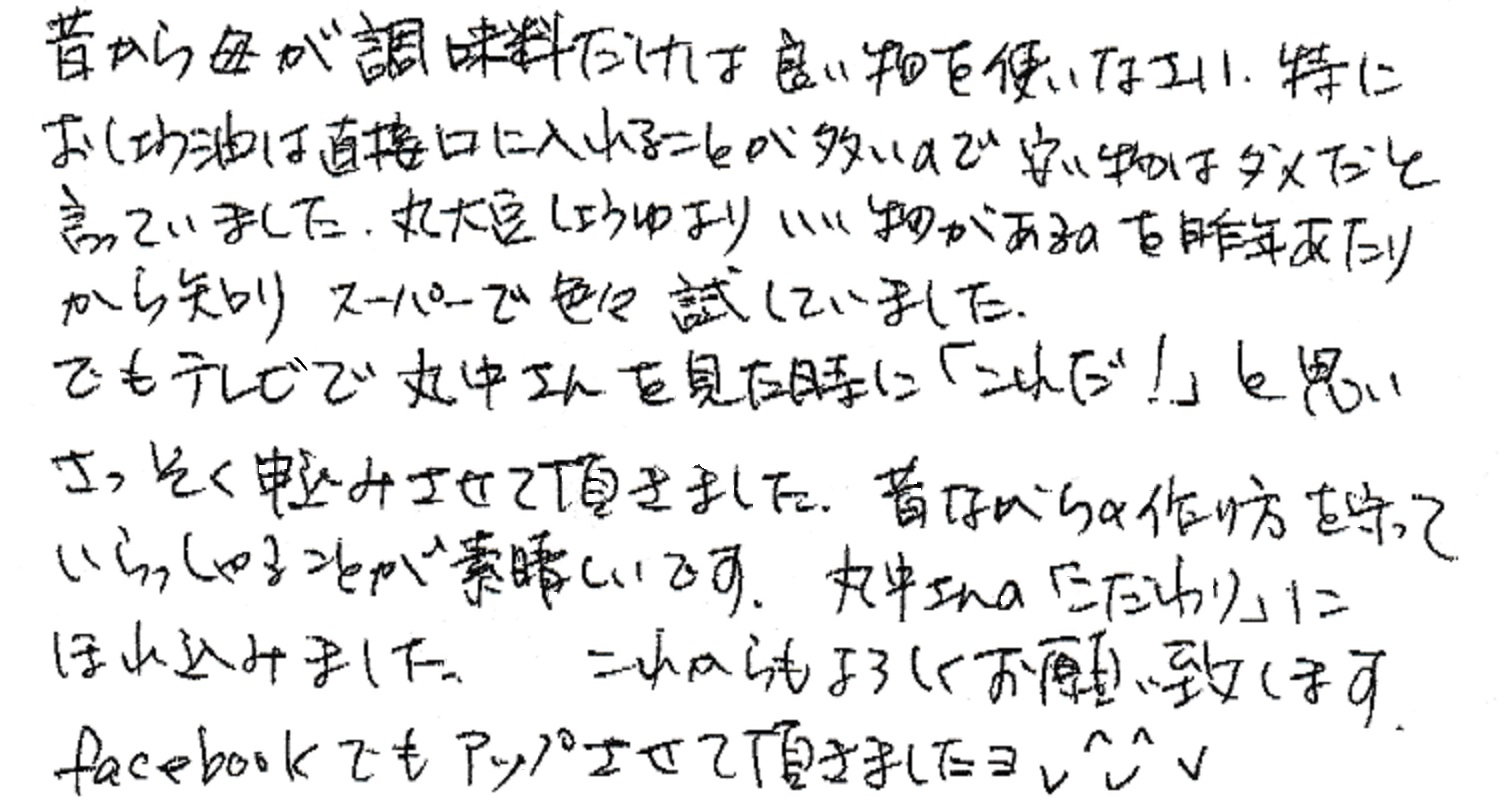 昔から母が調味料だけは良い物を使いなさい. 特に
おしょう油は直接口に入れることが多いので安い物はダメだと
言っていました. 丸大豆しょうゆよりいい物があるのを昨年あたり
から知り スーパーで色々試していました.
でもテレビで丸中さんを見た時に「これだ!」と思い
さっそく申込みさせて頂きました. 昔ながらの作り方を守って
いらっしゃることが素晴しいです. 丸中さんの「こだわり」に
ほれ込みました. これからもよろしくお願い致します.
facebookでもアップさせて頂きましたヨ